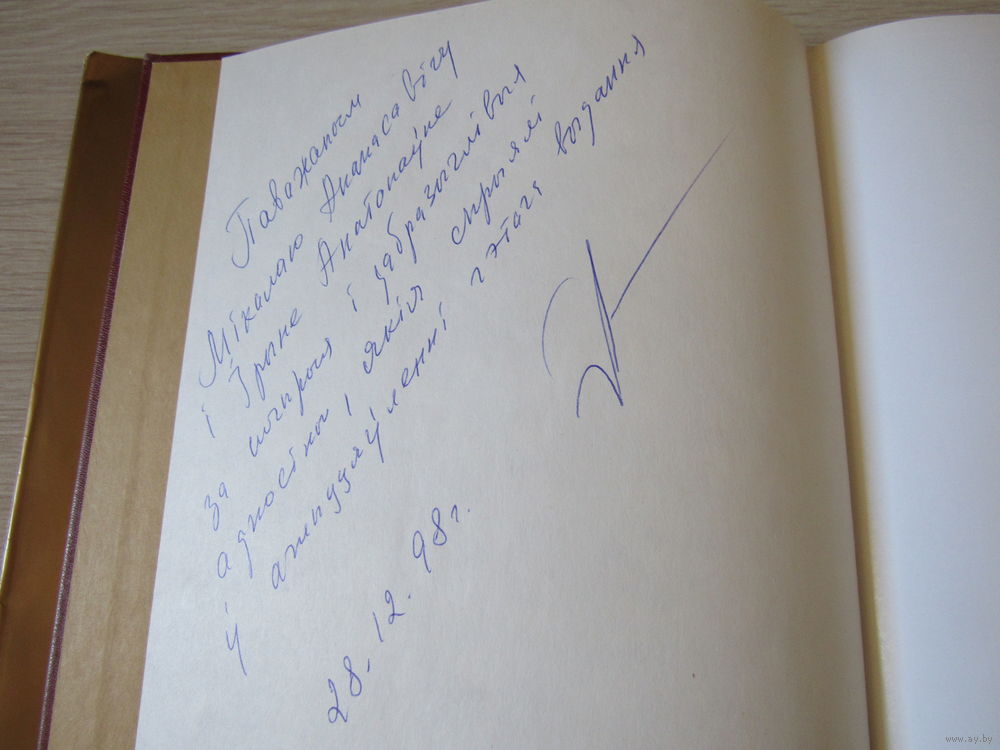 Паважаным
Мікалаю Апанасавічу
і Ірыне Анатольеўне
за шчырыя і ўзабразычлівыя
адносіны, якія спрыялі
ў ажыццяўленні гэтага выдання
28.12.98г.
www.ay.by